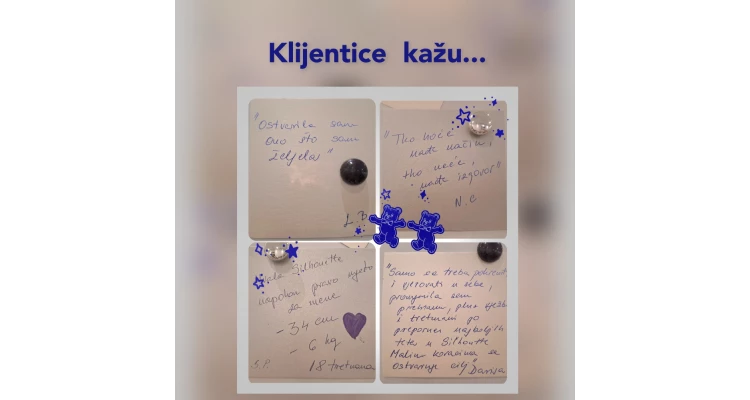 Klijentice kažu...
"Ostvarila sam
ono što sam
željela"
L.B.
"Tko hoće
nađe način,
tko neće,
nađe izgovor"
N.C
Silhouette
napokon pravo mjesto
za mene
- 34 cm
- 6 kg
S.P. 18 tretmana
"Samo se treba pokrenuti
i vjerovati u sebe,
promjenila sam
prehranu, plus vježbe
i tretmani po
preporuci najboljih
teta u Silhouette
Malim koracima se
ostvaruje cilj"